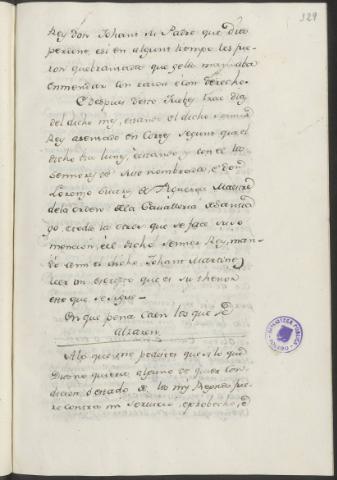 329
Rey don Johan mi Padre que Dios
perdone, e si en algun tiempo les fue-
ron quebrantados que gelo mandaba
enmendar con razon e con derecho.
E despues desto Jueves tres dias
del dicho mes, estando el dicho Sennor
Rey asentado en Cortes segunt que el
dicho dia lunes, estando y con el los
Sennores de suso nombrados, e don
Lorenzo Suarez de Figueroa Maestre
de la Orden de la Cavalleria de Santia-
go, e todos los otros que se face suso
mencion, el dicho Sennor Rey, man-
dó a mi el dicho Johan Martinez
leer un escripto que es su thenor
este que se sigue.
En que pena caen los que se
alzaren
A lo que me pedistes que si lo que
Dios no quiera alguno de qualquier con-
dicion o estado de los mis Regnos fue-
re contra mi servicio, e provecho, e
BIBLIOTECA PUBLICA
TOLEDO